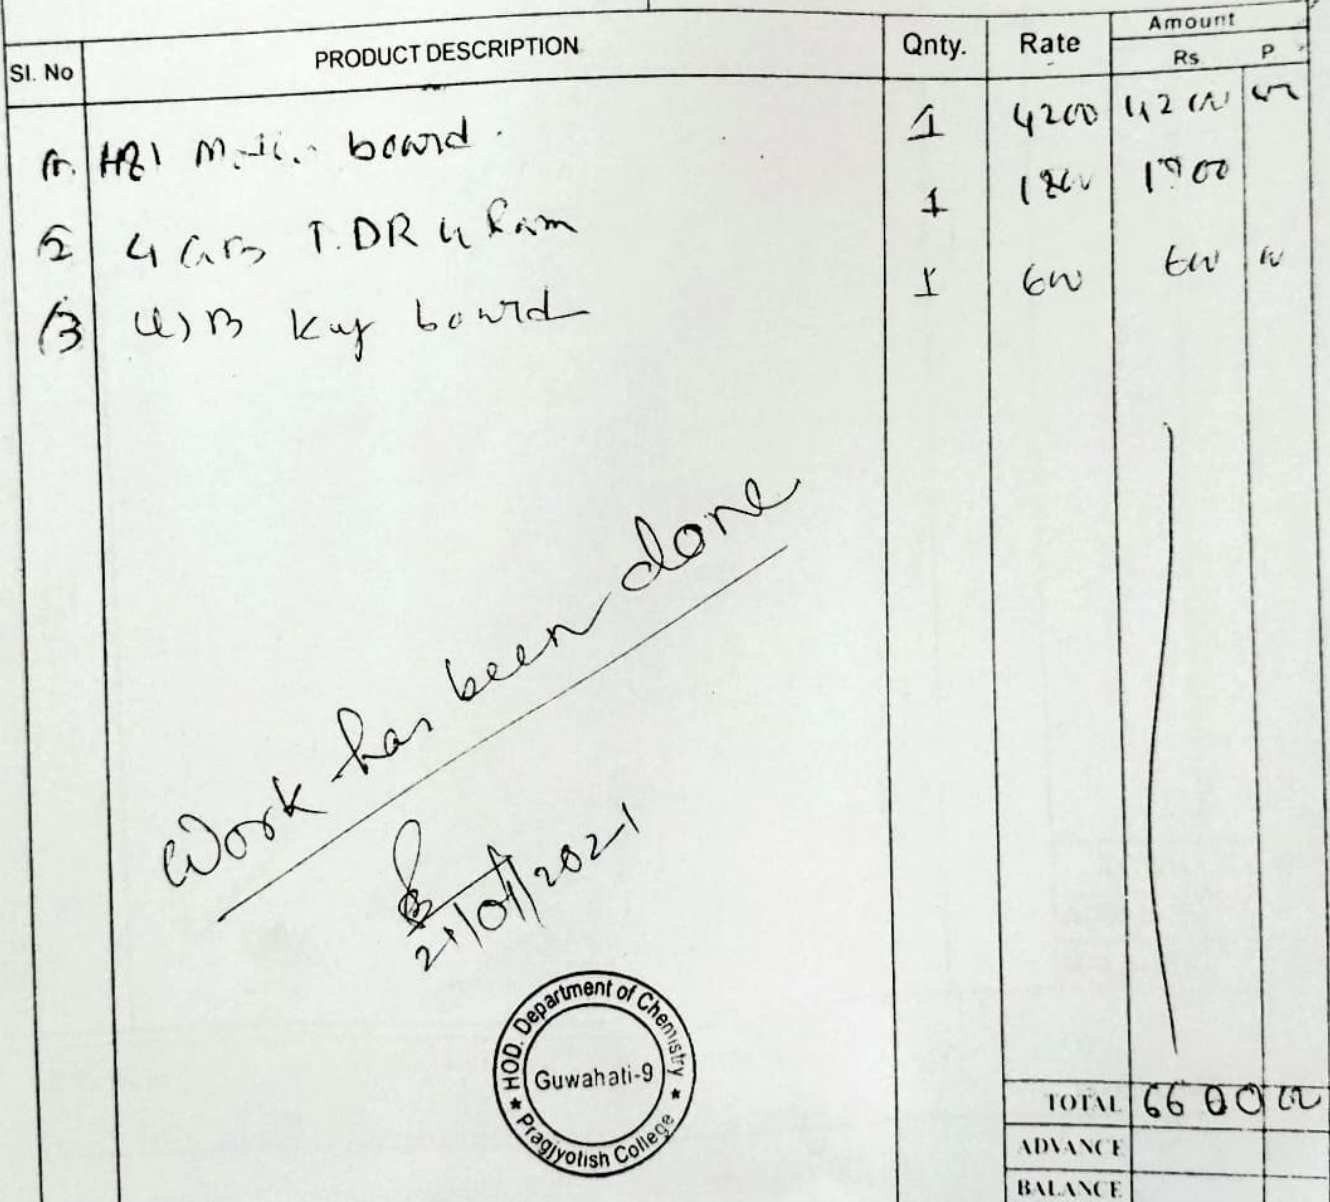 Amount
Sl. No PRODUCT DESCRIPTION Qnty. Rate Rs P
1. H81 Mother board. 1 4200 4200 00
2 4 GB DDR 4 Ram 1 1800 1800
3 USB Key board 1 600 600 00
Work has been done
21/04/2021
HOD. Department of Chemistry
Guwahati-9
★ Pragjyotish College ★
TOTAL 6600 00
ADVANCE
BALANCE